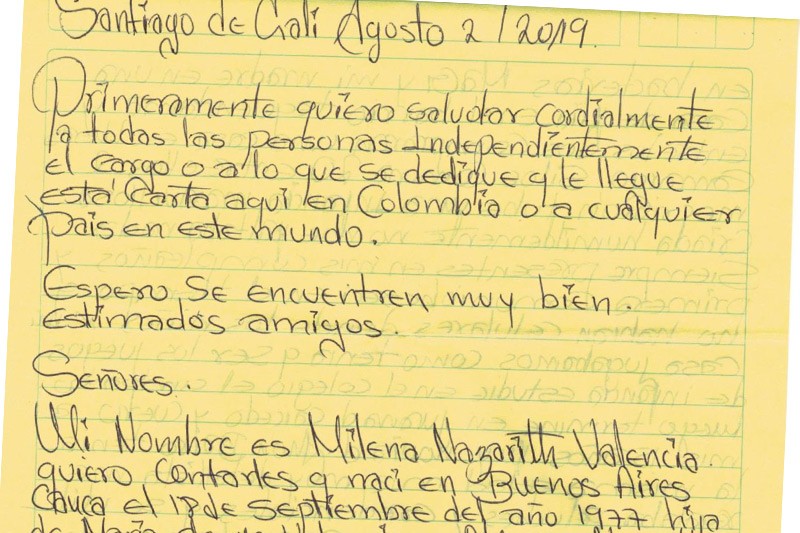 Santiago de Cali Agosto 2 / 2019.
Primeramente quiero saludar cordialmente
a todas las personas Independientemente
el cargo o a lo que se dedique q le llegue
esta Carta aquí en Colombia o a cualquier
País en este mundo.
Espero, Se encuentren muy bien.
Estimados amigos.
Señores.
Mi Nombre es Milena Nazarith Valencia.
quiero Contarles q nací en Buenos Aires
Cauca el 18 de septiembre del año 1977 hija